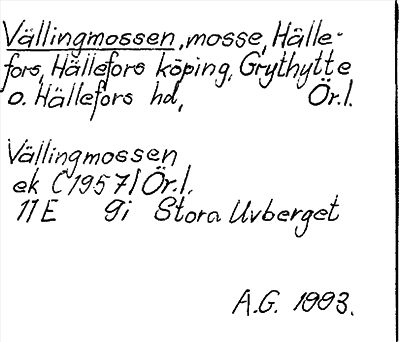 Vällingmossen, mosse, Hälle-
fors, Hällefors köping, Grythytte
o. Hällefors hd, Ör.l.
Vällingmossen
ek (1957) Ör.l.
11E 9i Stora Uvberget
A.G. 1993.